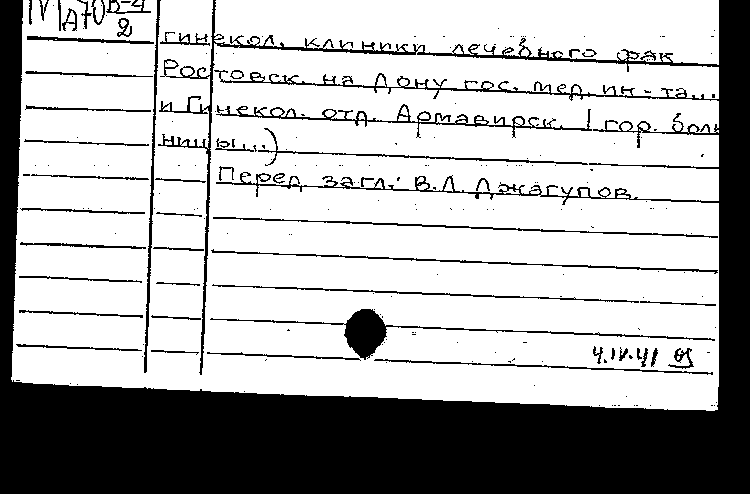 МА70 В-4
2
гинекол. клиники лечебного фак
Ростовск. на Дону гос. мед. ин-та...
и Гинекол. отд. Армавирск. 1 гор. боль
ницы...)
Перед загл.: В.Л. Джагупов.
4.IV.41